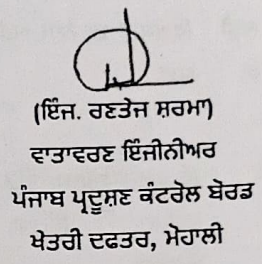 (ਇੰਜ. ਰਣਤੇਜ ਸ਼ਰਮਾ)
ਵਾਤਾਵਰਣ ਇੰਜੀਨੀਅਰ
ਪੰਜਾਬ ਪ੍ਰਦੂਸ਼ਣ ਕੰਟਰੋਲ ਬੋਰਡ
ਖੇਤਰੀ ਦਫਤਰ, ਮੋਹਾਲੀ